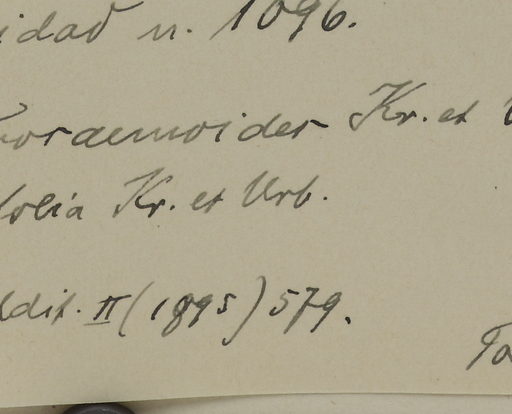 idad n. 1096.
oraenoider Kr. et
folia Kr. et Urb.
ddit. II (1895) 579.